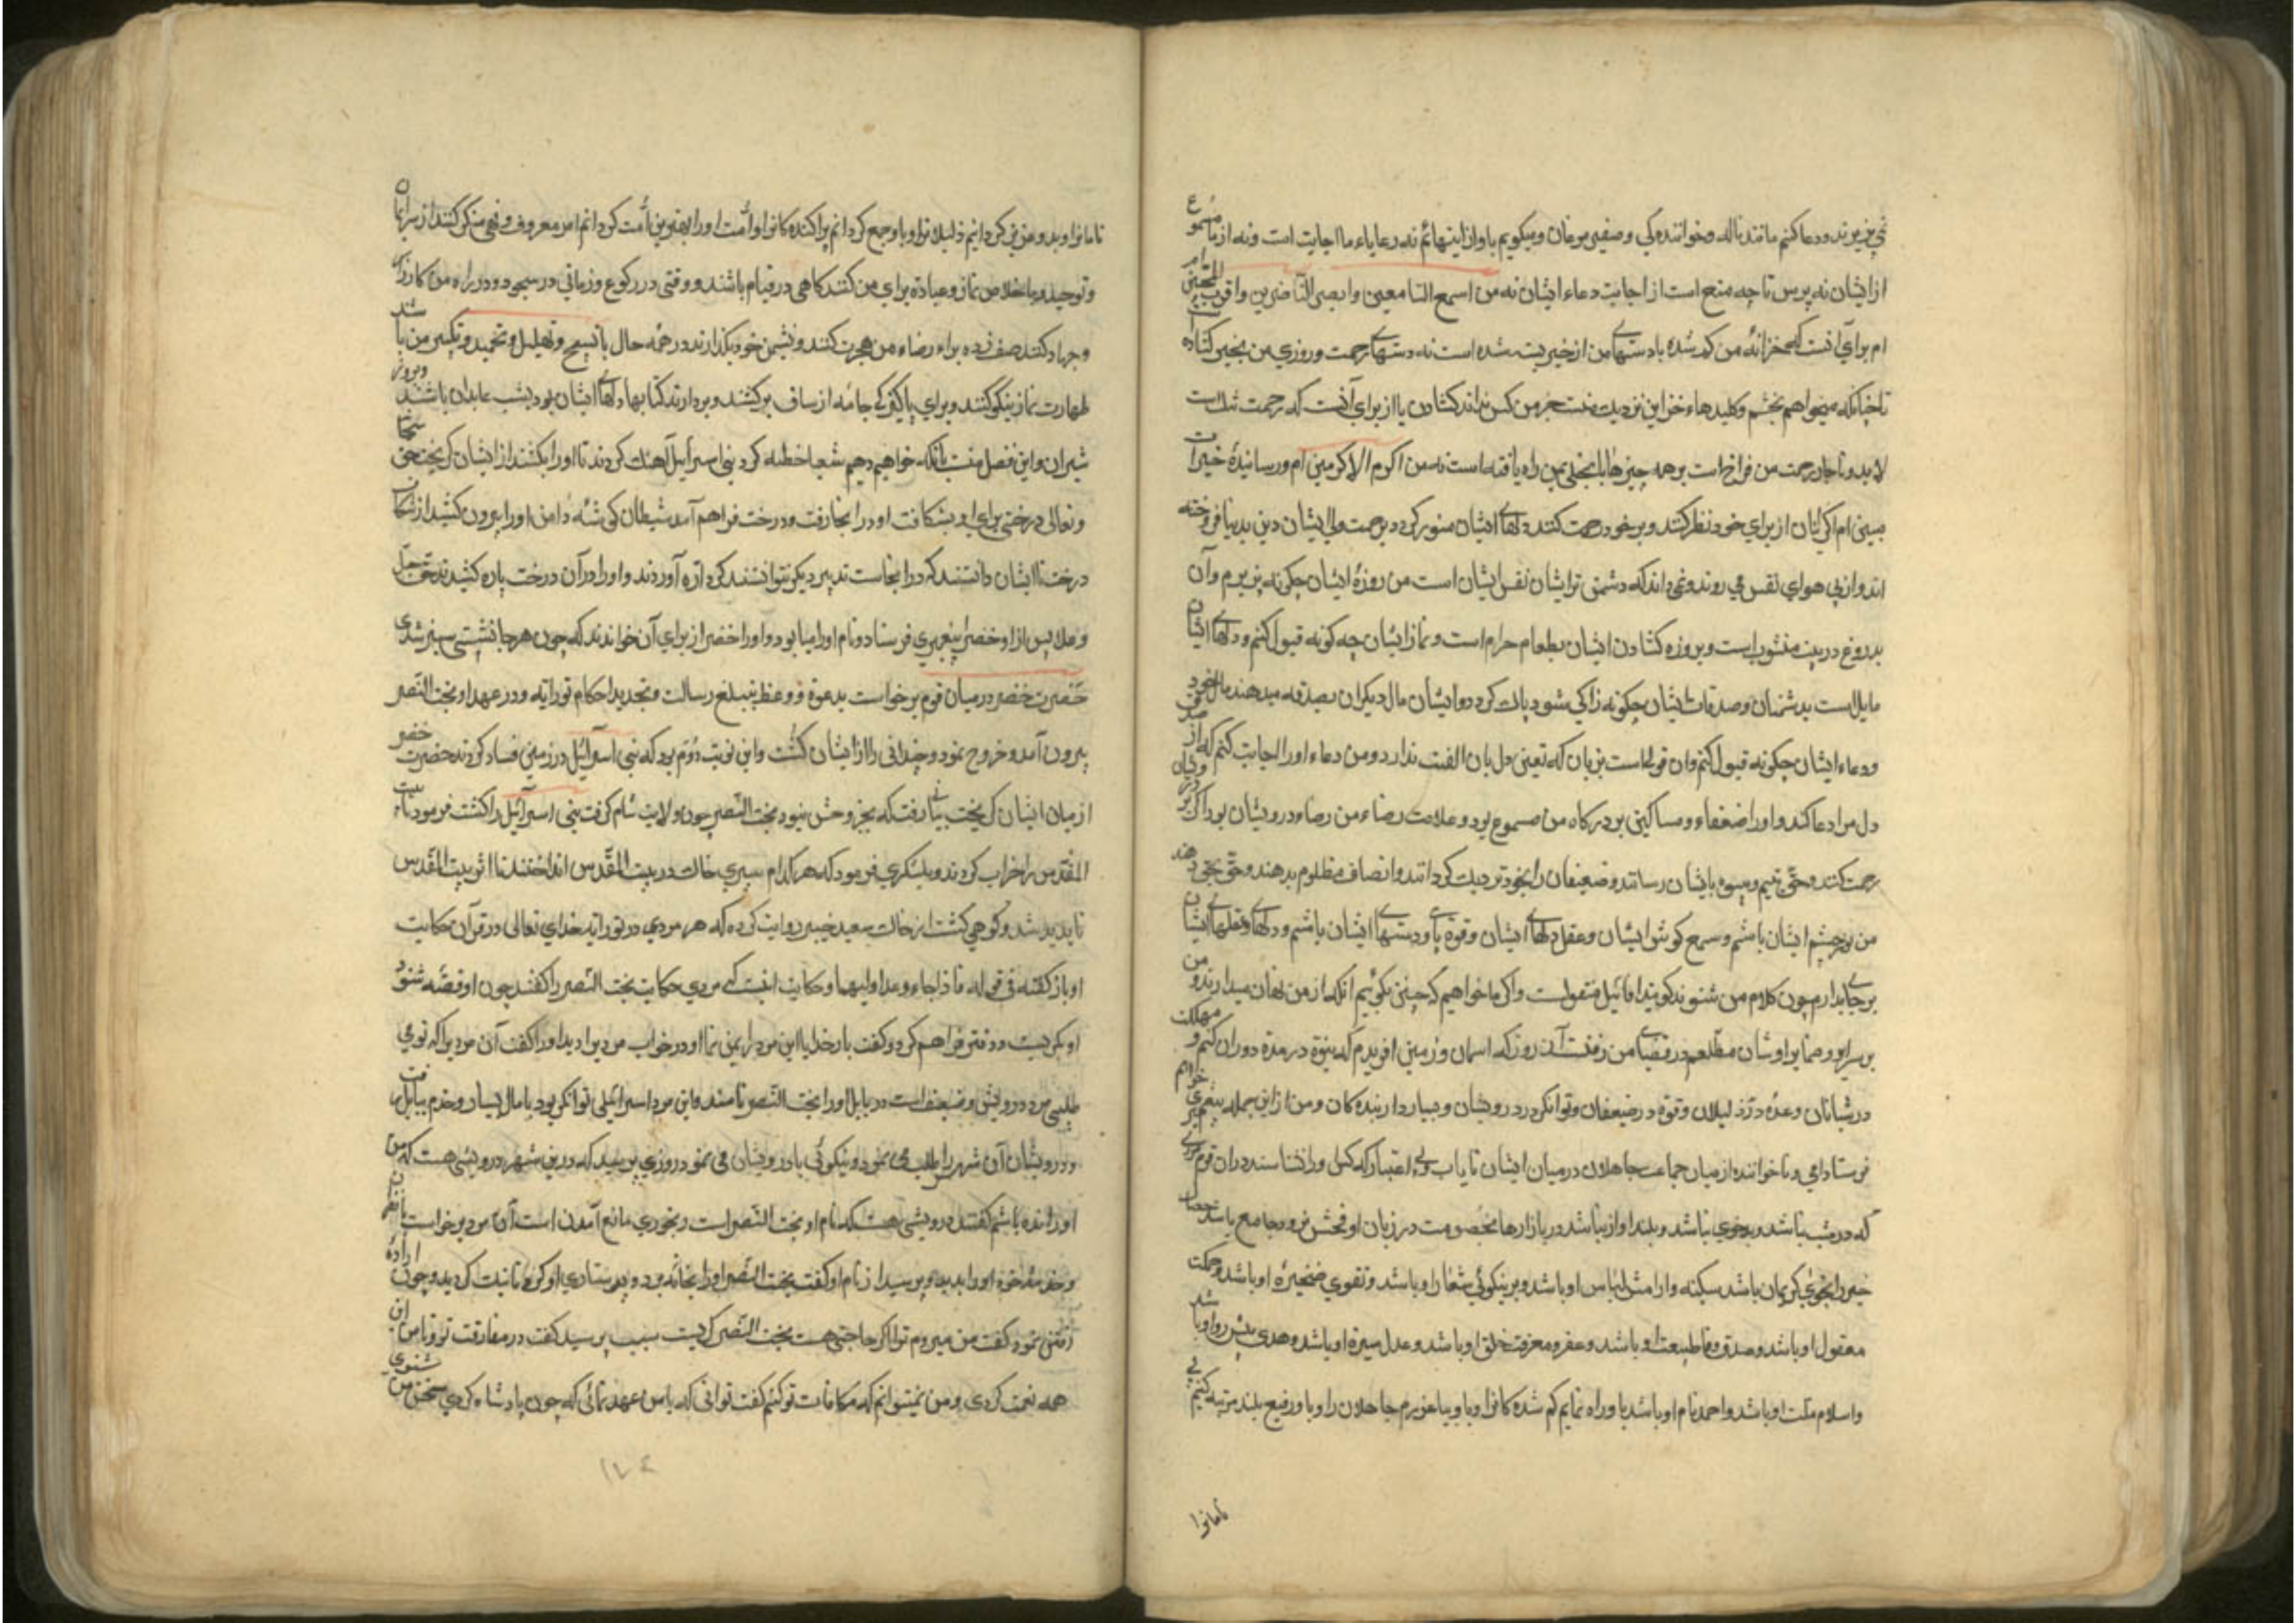 نمی پذیرند و دعا کنم مانند ناله و خوانندگی و صفیر مرغان و میگویم باواز اینها نم نه رعایاء ما اجابت است و نه از ما مسموع
از ایشان نه پرس تا چه منع است از اجابت دعاء ایشان نه من اسمع السامعین و ابصر الناضرین و اقرب المجیبین
ام برای آنست که خزانهٔ من کم شده یا دستهای من از خیر بسته شده است نه دستهای رحمت و روزی من بخیر گشاده
تا چنانکه میخواهم بخشم و کلیدهاء خزاین نزدیک منست جز من کس نداند گشادن یا از برای آنست که رحمت تنک است
لابد و ناچار رحمت من فراخ است بر همه چیزها یا بخل بمن راه یافته است نه من اکرم الاکرمین ام و رسانیدهٔ خیرات
ببینی ام اگر اینان از برای خود نظر کنند و بر خود رحمت کنند دلهای ایشان منور گردد برحمت ولی ایشان دین بدنیا فروخته
اند و از پی هوای نفس می روند و نمی دانند که دشمن تر ایشان نفس ایشان است من روزهٔ ایشان چگونه پذیرم و آن
بدروغ در پیت منشوب است و بروزه گشادن ایشان بطعام حرام است و نماز ایشان چه گونه قبول کنم و دلهای ایشان
مایل است بدشمنان و صدقات ایشان چگونه زاکی شود پاک گردد و ایشان مال دیگران بصدقه میدهند مال خود
و دعاء ایشان چگونه قبول کنم و آن قولی است بزبان که تعیین دل بان الفت ندارد و من دعاء او را اجابت کنم که از
دل مرا دعا کند و او را ضعفاء و مساکین بر درگاه من مسموع بود و علامت رضاء من رضاء درویشان بود اگر بر
رحمت کنند و حق یتیم و بیوه بایشان رسانند و ضعیفان را بخود نزدیک گردانند و انصاف مظلوم بدهند و حق بحق دهند
من نور چشم ایشان باشم و سمع گوش ایشان و عقل دلهای ایشان و قوة پای و دستهای ایشان باشم و دلها و عقلهای ایشان
بر جای بدارم چون کلام من شنوند گویند اقاویل منقول است و اگر ما خواهیم که چنین بگوئیم آنکه از من نهان میدارند و من
بر سرایر و ضمایر اوشان مطلعم در قضای من رفتست آن روز که اسمان و زمین افریدم که نبوة در مدة دوران کنم و مملکت
در شبانان و عزه در ذلیلان و قوة در ضعیفان و توانگر در درویشان و بسیار دار بنده کان و من از این جمله پیغمبری
فرستاده ام و ناخوانده از میان جماعت جاهلان در میان ایشان نایاب ولی اعتبار که کس او را نشناسد در آن قوم
که درشت نباشد و بدخوی نباشد و بلند اواز نباشد در بازارها بخصومت در زبان او فحش نرود جامع باشد خصال
خیر را بخوی کریمان باشد سکینه و ارامش لباس او باشد و بر نیکوئی شعار او باشد و تقوی ضمیرهٔ او باشد و حکمت
معقول او باشد و صدق و وفا طبیعت او باشد و عفو و معرفت خلق او باشد و عدل سیرة او باشد و هدی پیش رو او باشد
و اسلام ملت او باشد و احمد نام او باشد باو راه نمایم گم شده کانرا و باو بیاموزم جاهلان را و باو رفیع بلند مرتبه کنم
نامانرا
نامانرا و بدو عزیز کردانیم ذلیلانرا و باو جمع کردانم پراکنده کانرا و امّت او را بهترین امّت کردانم امر معروف و نهی منکر کنند از سر ایمان
و توحید و باخلاص نماز و عبادة برای من کنند کاهی در قیام باشند و وقتی در رکوع و زمانی در سجود و در راه من کارزار
و جهاد کنند صف زده براء رضاء من هجرت کنند و نشیمن خود بگذارند در همه حال با تسبیح و تهلیل و تحمید و تکبیر من باشند
طهارت نماز نیکو کنند و برای پاکیزگی جامه از ساق بر کنند و بردارند کتابها دلهای ایشان بود بشب عابدان باشند و بروز
شیران و این فضل منست بانکه خواهیم دهیم شعیا خطبه کرد بنی اسرآئیل آهنک کردند تا او را بکشند از ایشان گریخت حق
و تعالی درختی برای او بشکافت او در انجا رفت و درخت فراهم آمد شیطان گوشهٔ دامن او را بیرون کشید از شکاف
درخت تا ایشان دانستند که در انجاست تدبیر دیگر نتوانستند کرد ارّه آوردند و او را در آن درخت پاره کشیدند حق جل
و علا پس از او خضر را پیغمبری فرستاد و نام او ارمیا بود و او را خضر از برای آن خواندند که چون هر جا نشستی سبز شدی
حضرت خضر در میان قوم برخواست بدعوة و وعظ بتبلیغ رسالت و تجدید احکام توراته و در عهد او بخت النّصر
بیرون آمد و خروج نمود و چندانی را از ایشان کشت و این نوبت دوّم بود که بنی اسرآئیل در زمین فساد کردند حضرت خضر
از میان ایشان گریخت بجائی رفت که بجز وحش نبود بخت النّصر چون ولایت شام گرفت بنی اسرآئیل را کشت فرمود تا بیت
المقدّس را خراب کردند و بلشکری فرمود که هر کدام سپری خاک در بیت المقدّس انداختند تا اثر بیت المقدس
ناپدید شد و کوهی گشت از خاک سعید جبیر روایت کرده که هر مردی در توراته خدای تعالی در قرآن حکایت
او باز گفته فی قوله فاذا جاء وعد اولیهما و حکایت انست که مردی حکایت بخت النّصر را گفتند چون او قصّه شنود
او بگریست و دفتر فراهم کرد و گفت بار خدایا این مرد را بمن نما او در خواب مرد را دید او را گفت آن مرد را که تو می
طلبی مرد درویش و ضعیف است در بابل او را بخت النّصر نامند و این مرد اسرائیلی توانگر بود با مال بسیار و خدم ببابل رفت
و درویشان آن شهر را طلب می نمود و نیکوئی با درویشان می نمود روزی پرسید که درین شهر درویشی هست که من
او را ندیده باشم گفتند درویشی هست که نام او بخت النّصر است رنجوری مانع آمدن است آن مرد برخواست
و او را بدید و پرسید از نام او گفت بخت النّصر او را بخانه برد و بیمارستاری او کرد تا نیک گردید و چون ارادهٔ
رفتن نمود گفت من میروم ترا اگر حاجتی هست بخت النّصر گریست سبب پرسید گفت در مفارقت تو و با من این
همه نعمت کردی و من نمیتوانم که مکافات تو کنم گفت توانی که با من عهد نمائی که چون پادشاه گردی سخن من شنوی
۱۷۴